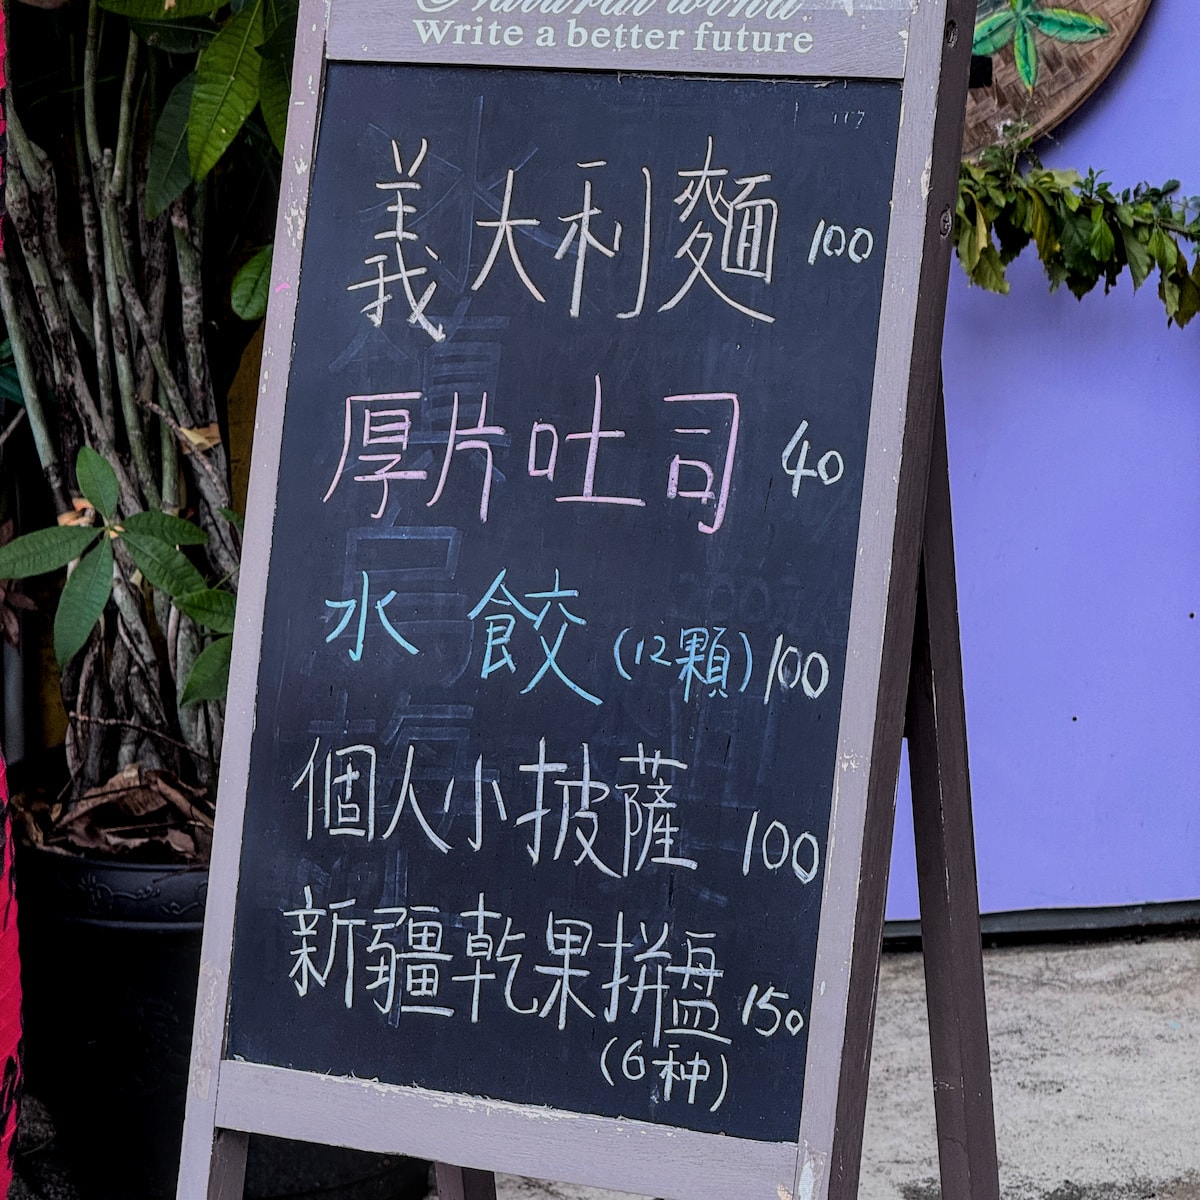 Natural wind
Write a better future
義大利麵 100
厚片吐司 40
水餃(12顆) 100
個人小披薩 100
新疆乾果拼盤 150
(6种)